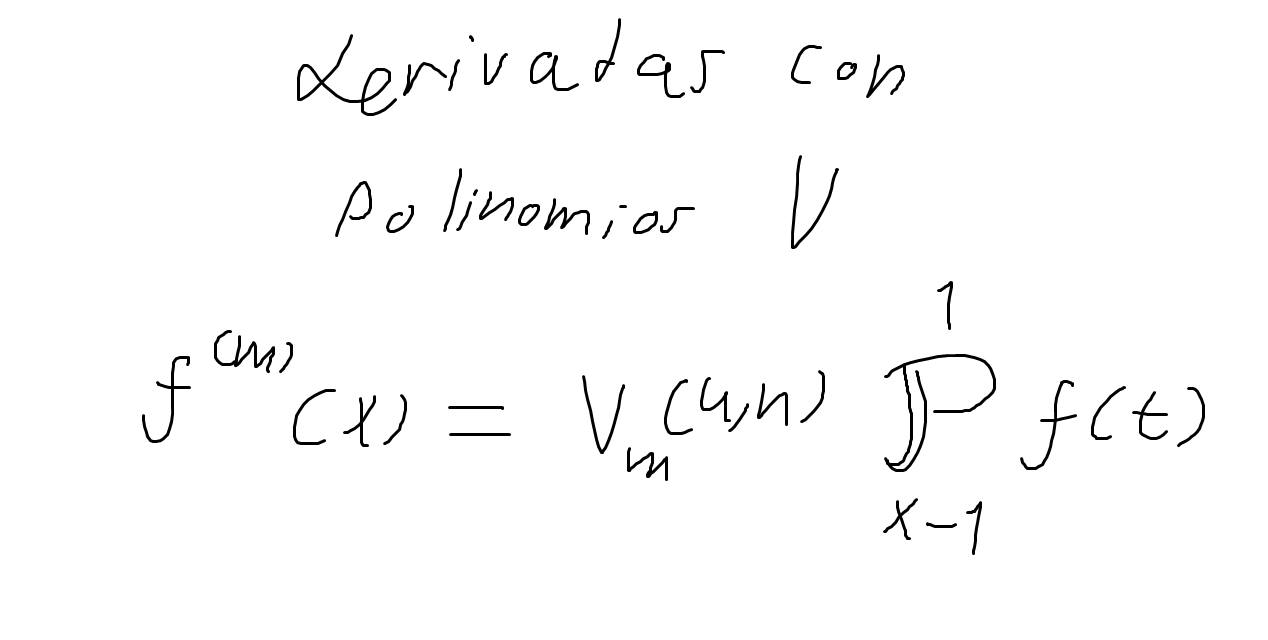 derivadas con
polinomios V
f^(m)(x) = V_m(u,n) ℙ_{x-1}^{1} f(t)